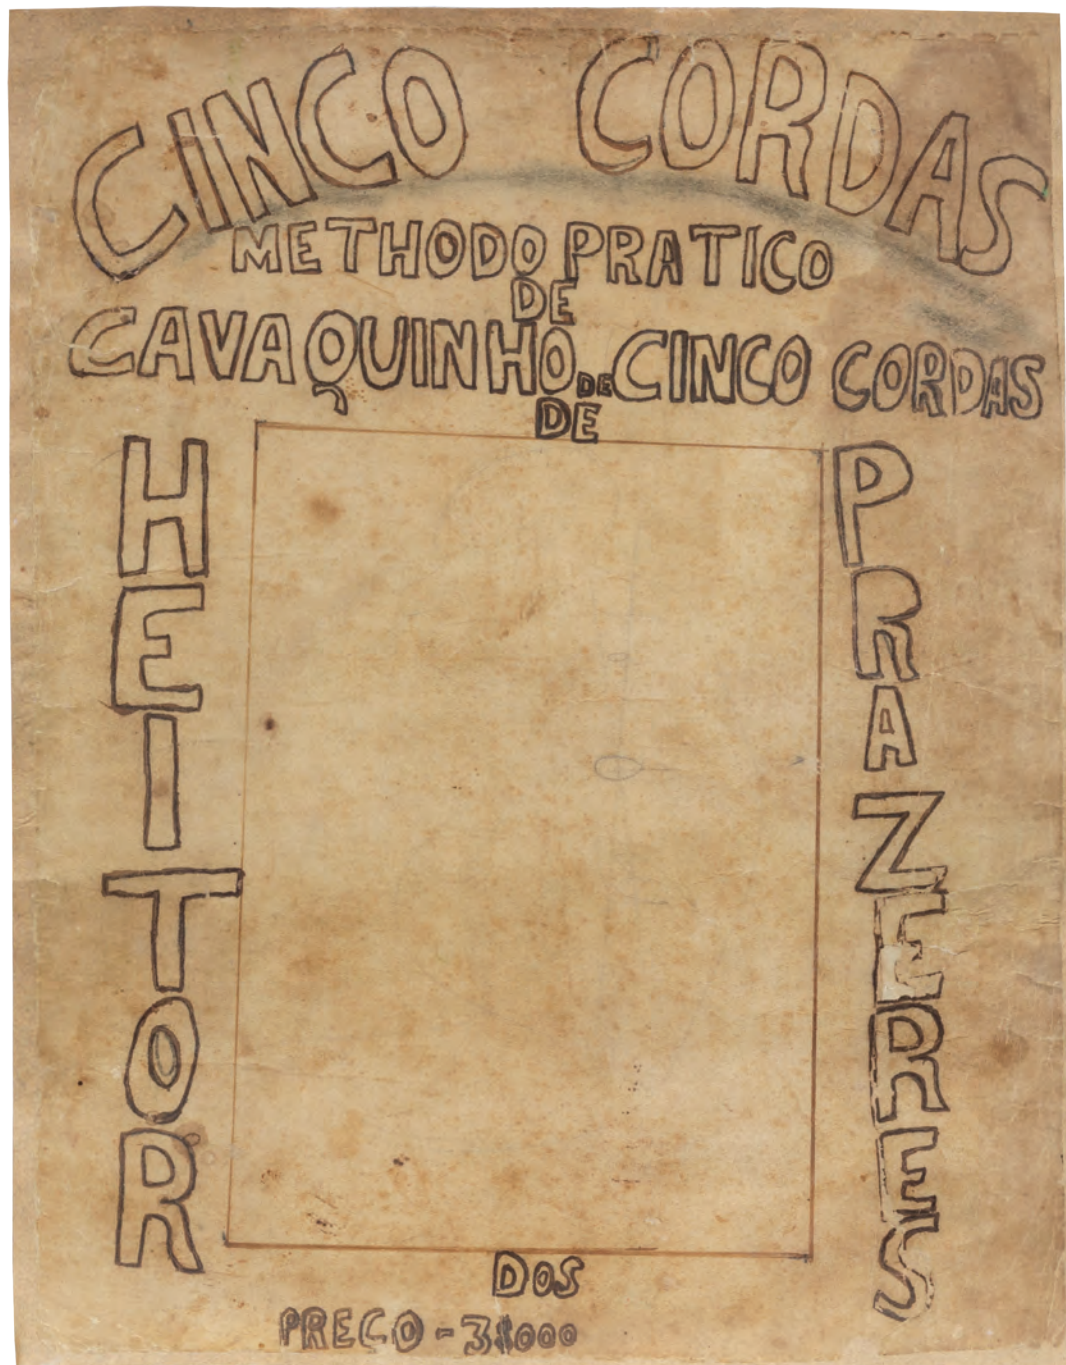 CINCO CORDAS
METHODO PRATICO
DE
CAVAQUINHO DE CINCO CORDAS
DE
HEITOR
DOS
PRAZERES
PREÇO - 3$000